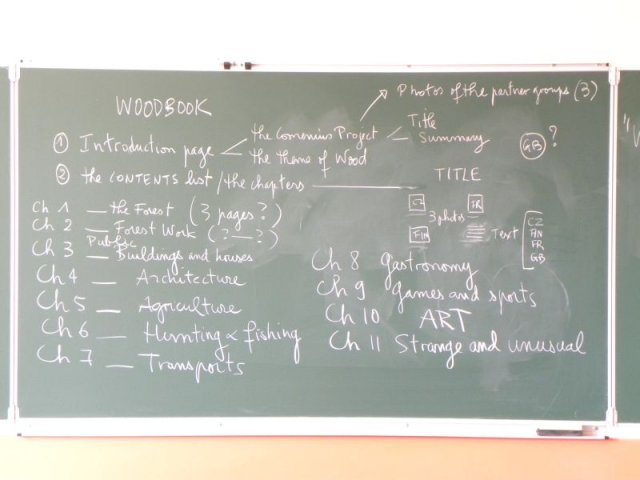 Photos of the partner groups (3)
WOODBOOK
① Introduction page
the Comenius Project
the theme of Wood
Title
Summary
GB ?
② the CONTENTS list / the chapters
TITLE
CZ FR
3 photos
FIN
Text
CZ
FIN
FR
GB
Ch 1 — the Forest (3 pages?)
Ch 2 — Forest Work (?—?)
Ch 3 — Public Buildings and houses
Ch 4 — Architecture
Ch 5 — Agriculture
Ch 6 — Hunting & fishing
Ch 7 — Transports
Ch 8 Gastronomy
Ch 9 Games and sports
Ch 10 ART
Ch 11 Strange and unusual